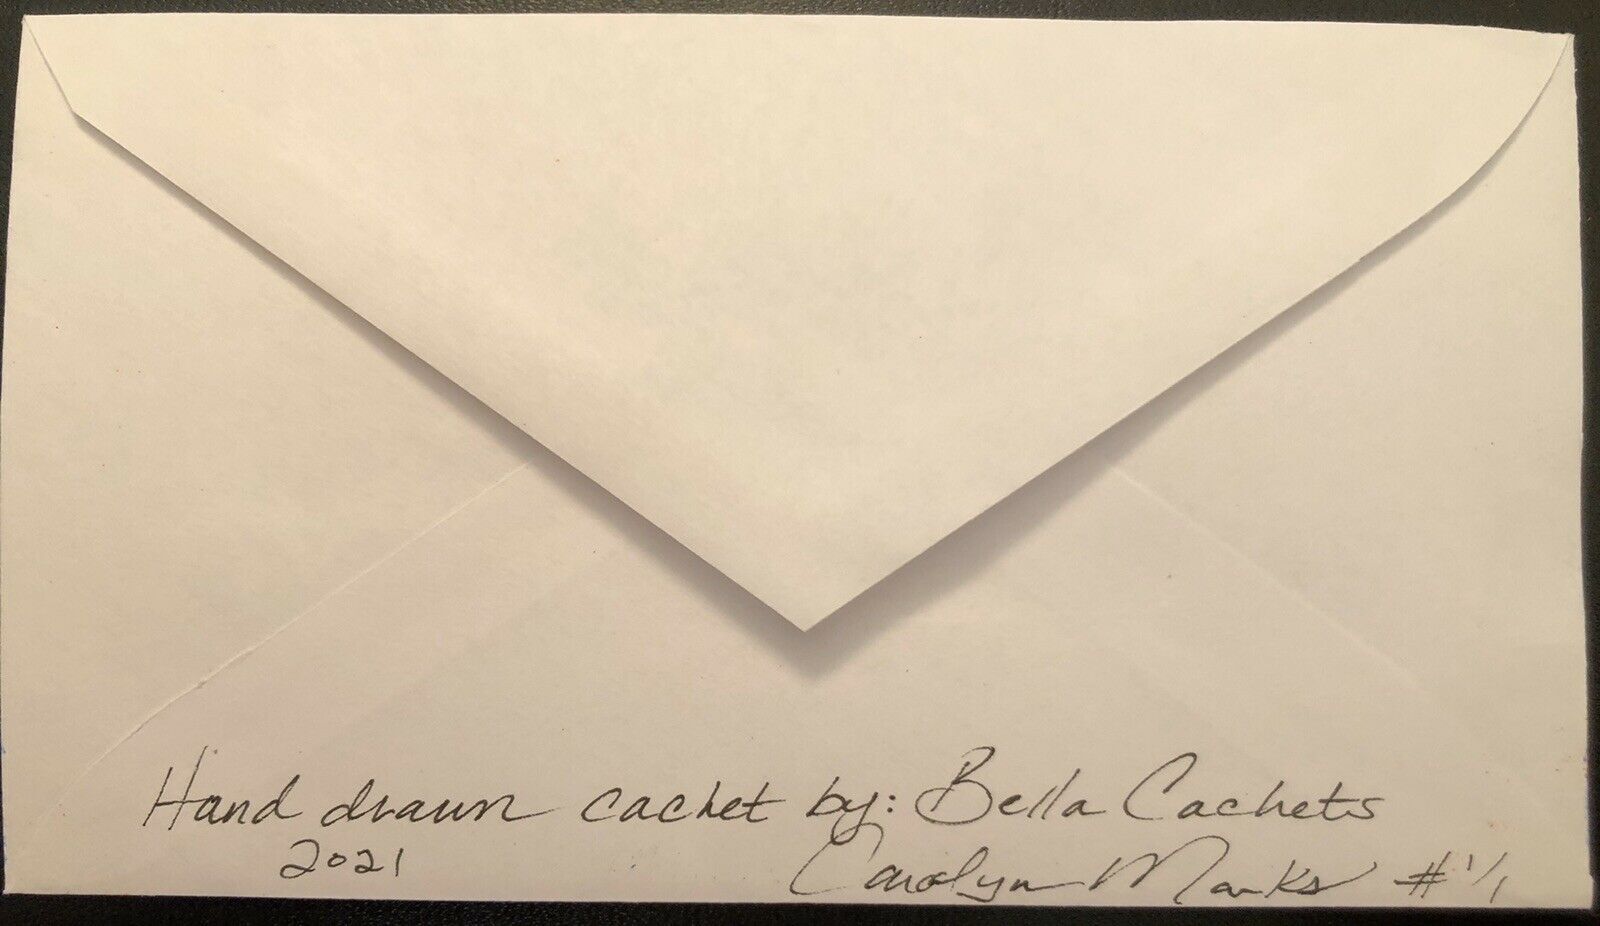 Hand drawn cachet by: Bella Cachets
2021 Carolyn Marks #1/1